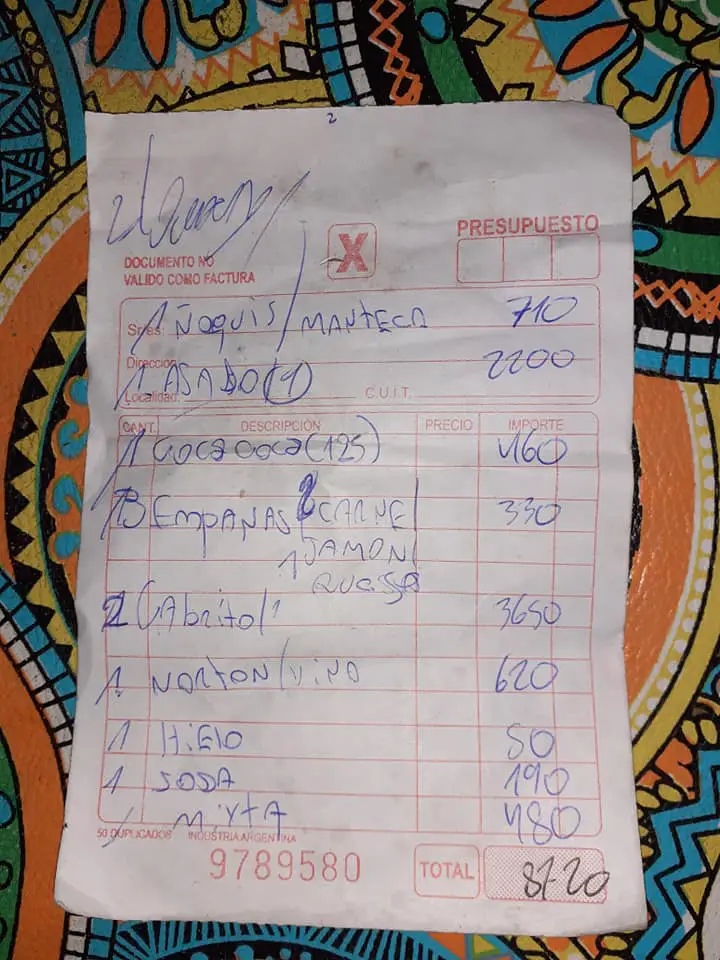 2
DOCUMENTO NO
VALIDO COMO FACTURA
X
PRESUPUESTO
Sres:
1 ÑOQUIS/MANTECA 710
Dirección:
1 ASADO(1) 2200
Localidad: C.U.I.T.
CANT. DESCRIPCIÓN PRECIO IMPORTE
1 COCA COCA(125) 460
3 EMPANAS/2 CARNE/
1 JAMON/ 330
2 CAbrito/1 3650
1 NORTON/VINO 620
1 HiElO 50
1 SODA 190
1 MiXTA 480
50 DUPLICADOS INDUSTRIA ARGENTINA
9789580
TOTAL 8720